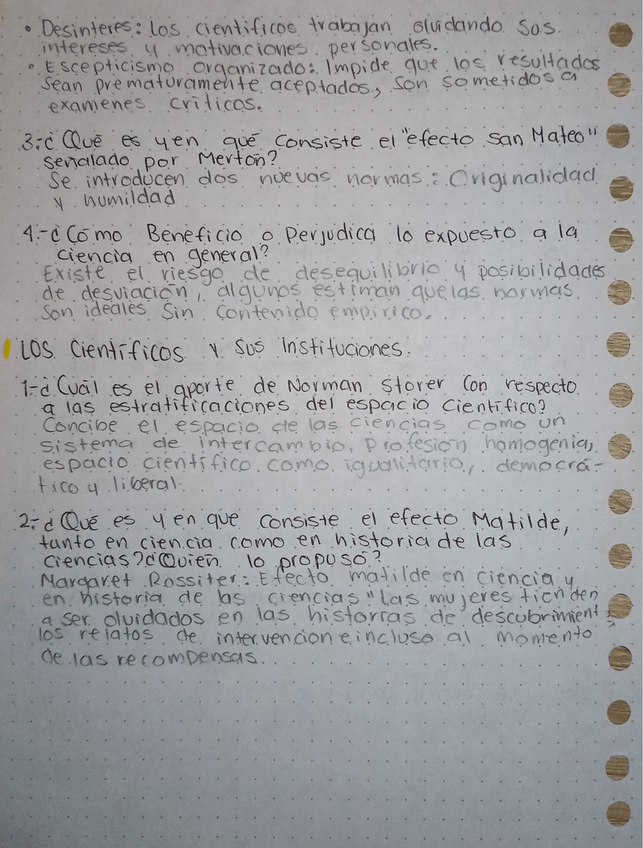 • Desinteres: los científicos trabajan olvidando sos
intereses y motivaciones personales.
• Escepticismo organizado: Impide que los resultados
sean prematuramente aceptados, son sometidos a
examenes críticos.
3-¿Qué es y en qué consiste el "efecto san Mateo"
señalado por Merton?
Se introducen dos nuevas normas: Originalidad
y humildad
4-¿Cómo Beneficio o perjudica lo expuesto a la
ciencia en general?
Existe el riesgo de desequilibrio y posibilidades
de desviación, algunos estiman que las normas
son ideales sin contenido empirico.
Los Científicos y sus Instituciones.
1-¿Cuál es el aporte de Norman Storer con respecto
a las estratificaciones del espacio científico?
Concibe el espacio de las ciencias como un
sistema de intercambio, profesión homogenia,
espacio científico como igualitario, democrá-
tico y liberal.
2-¿Qué es y en que consiste el efecto Matilde,
tanto en ciencia como en historia de las
ciencias? ¿Quién lo propuso?
Margaret Rossiter: Efecto matilde en ciencia y
en historia de las ciencias "Las mujeres tienden
a ser olvidados en las historias de descubrimientos
los relatos de intervencion e incluso al momento
de las recompensas.